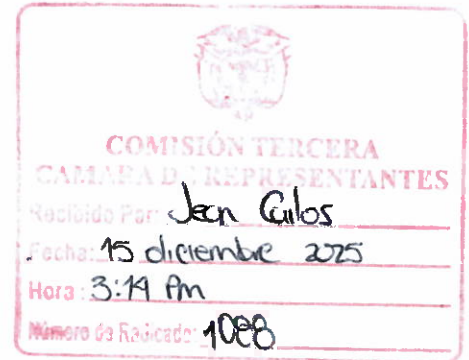 COMISIÓN TERCERA
CAMARA DE REPRESENTANTES
Recibido Por: Jean Carlos
Fecha: 15 diciembre 2025
Hora: 3:14 Pm
Número de Radicado: 1088